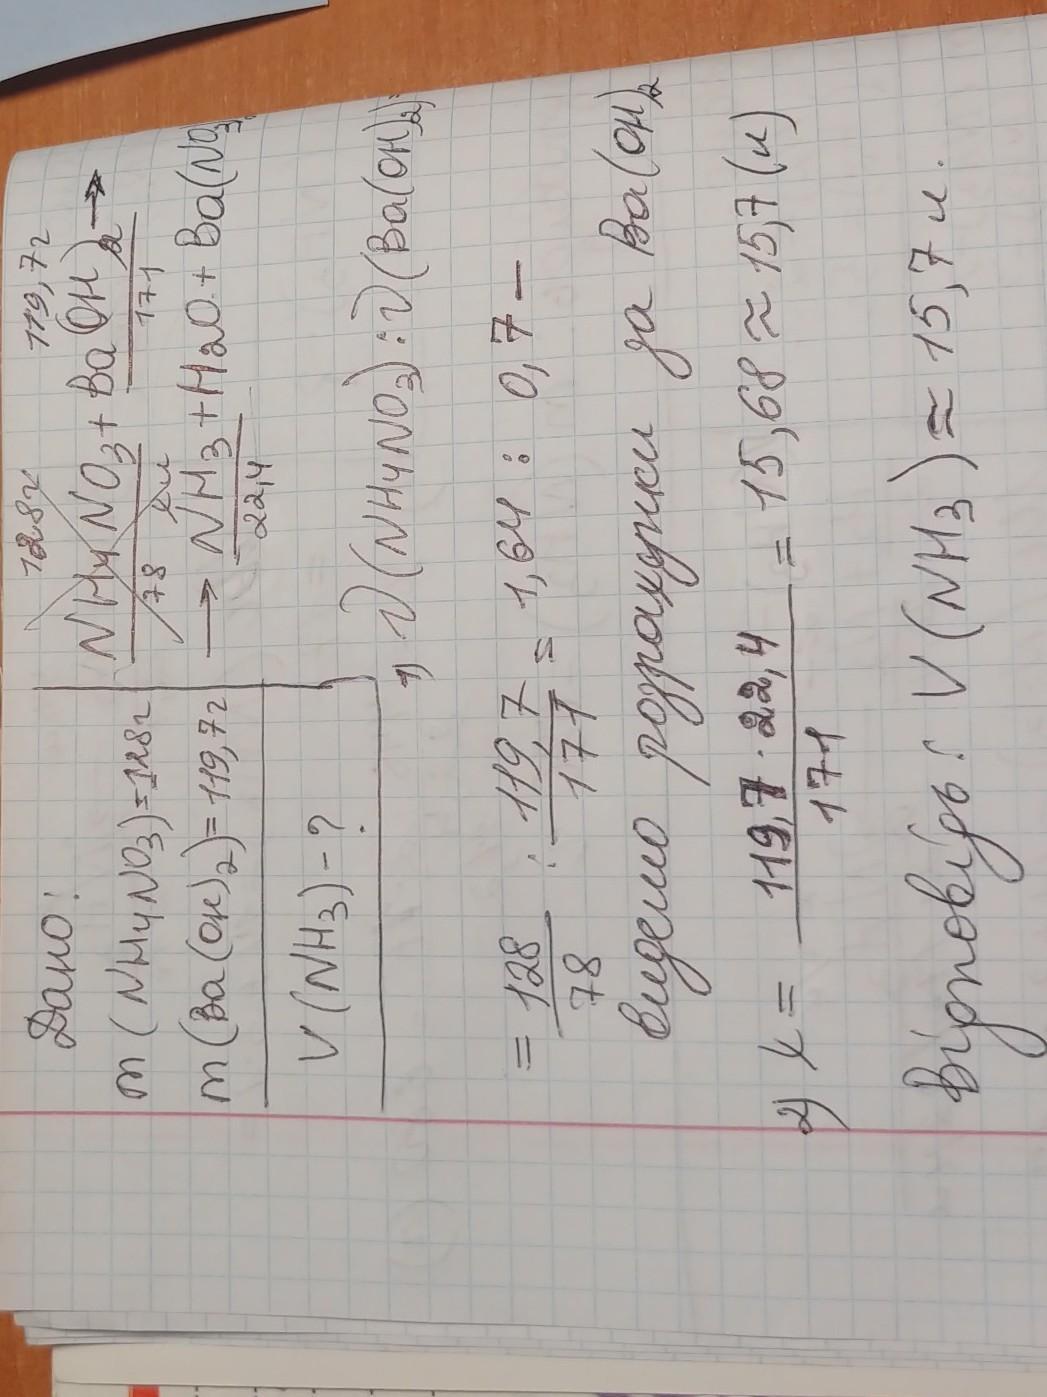 Дано:
m (NH4NO3)=128г
m(Ba(OH)2)=119,7г
V(NH3)-?
128г 119,7г
NH4NO3 + Ba(OH)2 →
78 xл 171
→ NH3 + H2O + Ba(NO3
22,4
1) ν(NH4NO3):ν(Ba(OH)2)=
= 128/78 : 119,7/171 = 1,64 : 0,7 –
ведемо розрахунки за Ba(OH)2
2) x = 119,7·22,4/171 = 15,68 ≈ 15,7 (л)
Відповідь: V(NH3) ≈ 15,7 л.